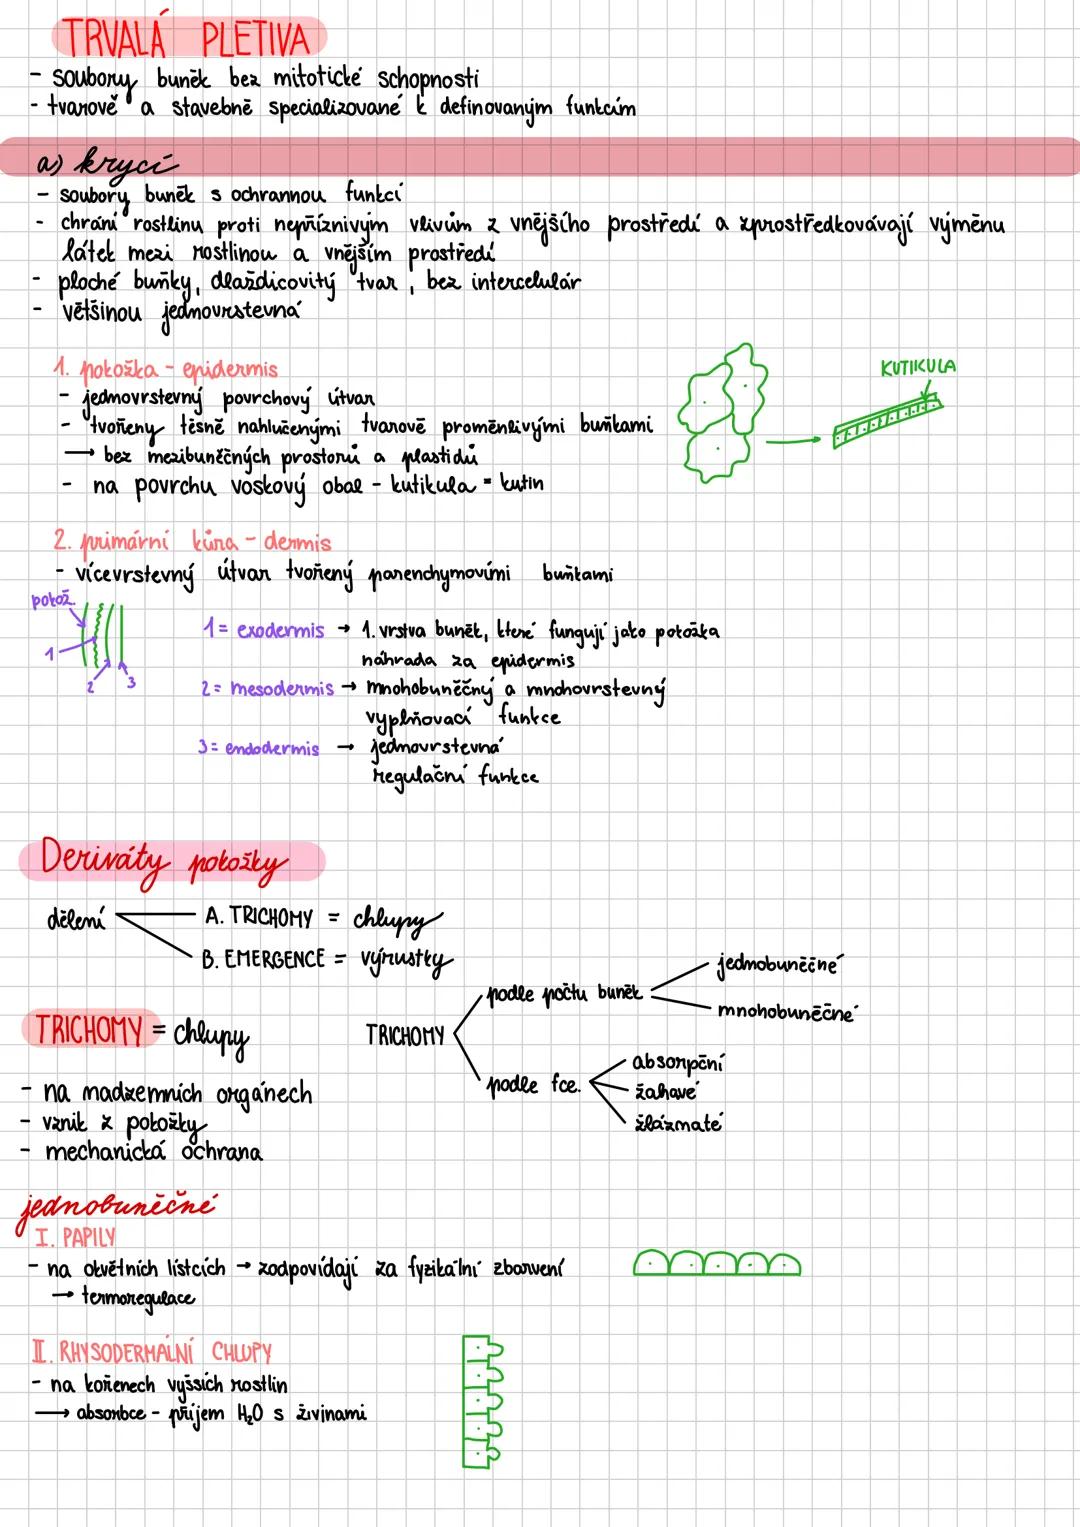 TRVALÁ PLETIVA
- soubory buněk bez mitotické schopnosti
- tvarově a stavebně specializované k definovaným funkcím
a) krycí
- soubory buněk s ochrannou funkcí
- chrání rostlinu proti nepříznivým vlivům z vnějšího prostředí a zprostředkovávají výměnu
látek mezi rostlinou a vnějším prostředí
- ploché buňky, dlaždicovitý tvar, bez intercelulár
- většinou jednovrstevná
1. pokožka - epidermis
- jednovrstevný povrchový útvar
- tvořeny těsně nahlučenými tvarově proměnlivými buňkami
→ bez mezibuněčných prostorů a plastidů
- na povrchu voskový obal - kutikula = kutin
KUTIKULA
2. primární kůra - dermis
- vícevrstevný útvar tvořený parenchymovými buňkami
pokož.
1
2
3
1 = exodermis → 1. vrstva buněk, které fungují jako pokožka
náhrada za epidermis
2 = mesodermis → mnohobuněčný a mnohovrstevný
vyplňovací funkce
3 = endodermis → jednovrstevná
regulační funkce
Deriváty pokožky
dělení
A. TRICHOMY = chlupy
B. EMERGENCE = výrustky
TRICHOMY = chlupy
TRICHOMY
podle počtu buněk
jednobuněčné
mnohobuněčné
podle fce.
absorpční
žahavé
žláznaté
- na nadzemních orgánech
- vznik z pokožky
- mechanická ochrana
jednobuněčné
I. PAPILY
- na okvětních lístcích → zodpovídají za fyzikální zbarvení
→ termoregulace
II. RHYSODERMÁLNÍ CHLUPY
- na kořenech vyšších rostlin
→ absorbce - příjem H₂O s živinami